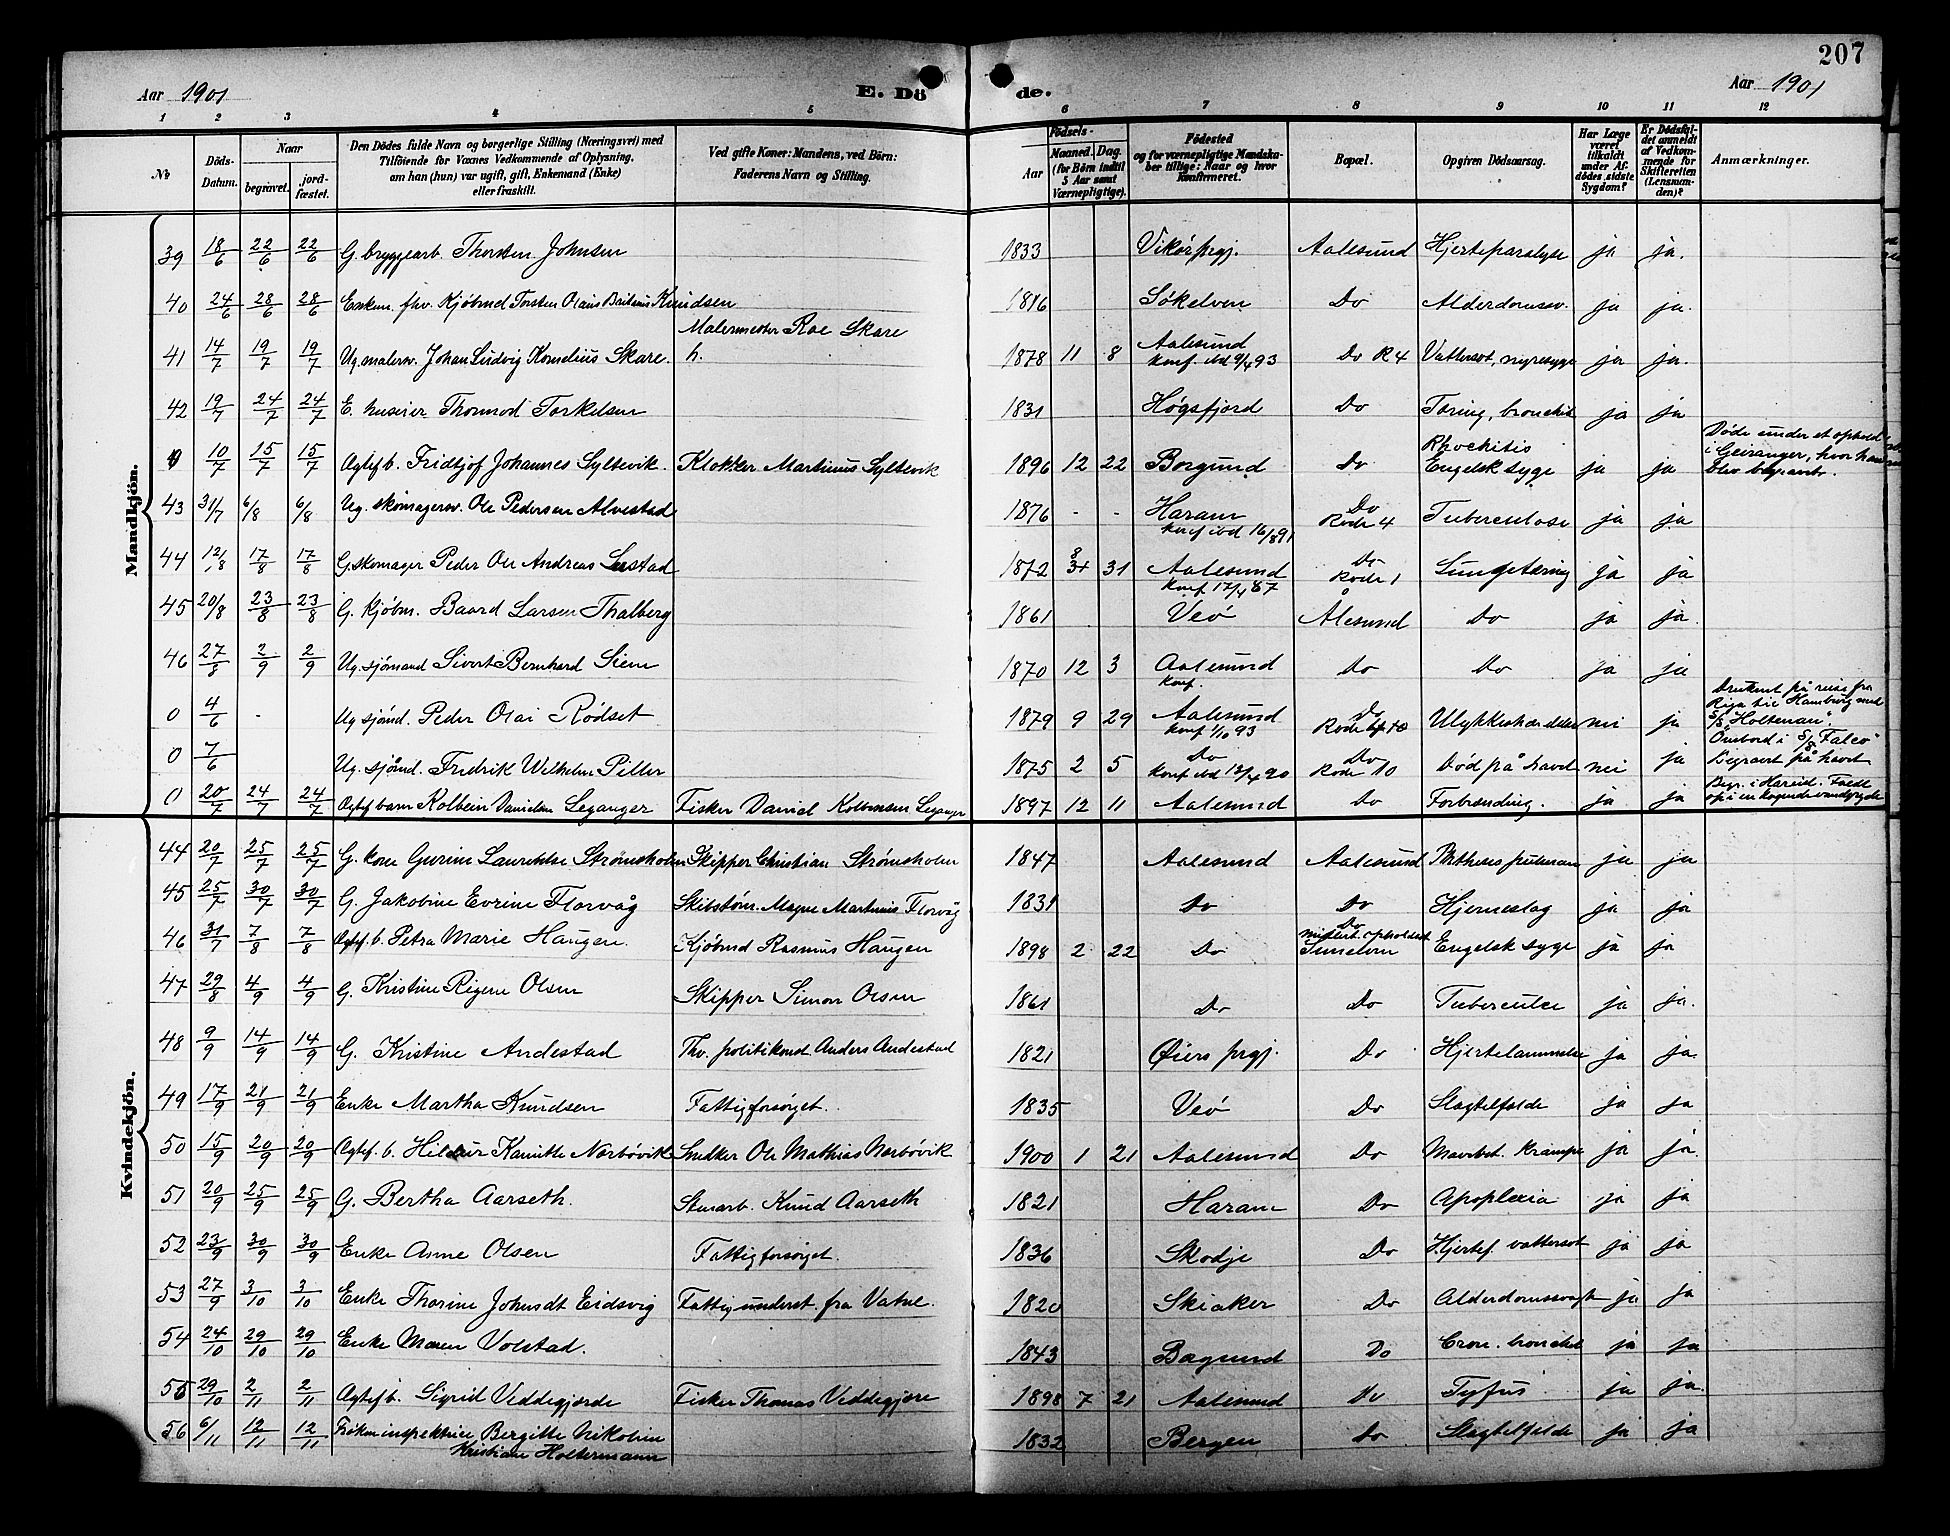 207
Aar 1901 E. Dö de. Aar 1901
1 2 3 4 5 6 7 8 9 10 11 12
№ Döds-Datum. Naar begravet. jord-fæstet. Den Dödes fulde Navn og borgerlige Stilling (Næringsvei) med Tilföiende for Voxnes Vedkommende af Oplysning, om han (hun) var ugift, gift, Enkemand (Enke) eller fraskilt. Ved gifte Koner: Mandens, ved Börn: Faderens Navn og Stilling. Födsels- Aar Maaned. Dag. (for Börn indtil 5 Aar samt Værnepligtige). Födested og for værnepligtige Mandskaber tillige: Naar og hvor konfirmeret. Bopæl. Opgiven Dödsaarsag. Har Læge været tilkaldt under Afdödes sidste Sygdom? Er Dödsfaldet anmeldt af Vedkommende for Skifteretten (Lensmanden)? Anmærkninger.
Mandkjön.
39 18/6 22/6 22/6 G. bryggearb Thorsten Johnsen 1833 Vikör prgj. Aalesund Hjerteparalyse ja ja.
40 24/6 28/6 28/6 Enkem. fhv. Kjöbmd Torsten Olaus Knudsen 1816 Sökelven Do Alderdomssv. ja ja.
Malermester Roe Skare
41 14/7 19/7 19/7 Ug. malersv. Johan Ludvig Kornelius Skare. h. 1878 11 8 Aalesund Do R 4 Vattersot, nyresyge ja ja.
konf. ibd 9/4 93
42 19/7 24/7 24/7 E. huseier Thormod Torkelsen 1831 Högsfjord Do Tæring, bronchit ja ja
0 10/7 15/7 15/7 Ægtef b. Fridtjof Johannes Syltevik. Klokker Martinus Syltevik 1896 12 22 Borgund Do Rhachitis Engelsk syge ja ja Döde under et ophold i Geiranger, hvor han blev begravet.
43 31/7 6/8 6/8 Ug. skomagersv. Ole Pedersen Alvestad 1876 - - Haram Do Rode 4 Tuberculose ja ja
konf ibd 16/8 91
44 12/8 17/8 17/8 G. skomager Peder Ole Andreas 1872 8 31 Aalesund Do Rode 1 Lungetæring ja ja
konf 17/4 87
45 20/8 23/8 23/8 G. kjöbm. Baard Larsen Thalberg 1861 Veö Ålesund Do ja ja.
46 27/8 2/9 2/9 Ug. sjömand Sivert Bernhard Siem 1870 12 3 Aalesund Do Do ja ja
konf.
0 4/6 - Ug sjömd. Peder Olai Rödset 1879 9 29 Aalesund Do Rode 10 Ulykkeshændelse nei ja Druknet på reise fra Riga til Hamburg med S/S "Holtenau".
konf 1/10 93
0 7/6 Ug. sjömd. Fredrik Wilhelm Piller 1875 2 5 Do Do Rode 10 Död på havet nei ja Ombord i S/S "Falco" Begravet på havet
konf ibd 13/4 90
0 20/7 24/7 24/7 Ægtef barn Kolbein Danielsen Leganger Fisker Daniel Kolbensen Leganger 1897 12 11 Aalesund Do Forbrænding. ja ja Begr. i Hareid. Faldt op i en kogende vandgryde
Kvindekjön.
44 20/7 25/7 25/7 G. kone Gurine Lauritze Strömsholm Skipper Christian Strömsholm 1847 Aalesund Aalesund Phthisis pulmon ja ja
45 25/7 30/7 30/7 G. Jakobine Evrine Florvåg Skibstöm. Magne Martinus Florvåg 1831 Do Do Hjerneslag ja ja
46 31/7 7/8 7/8 Ægtef. b. Petra Marie Haugen. Kjöbmd Rasmus Haugen 1898 2 22 Do Do midlert. opholdsst. Engelsk syge ja ja
47 29/8 4/9 4/9 G. Kristine Rigene Olsen Skipper Simon Olsen 1861 Do Do Tuberculose ja ja.
48 9/9 14/9 14/9 G. Kristine Andestad Fhv. politikond. Anders Andestad 1821 Öiers prgj. Do Hjertelammelse ja ja.
49 17/9 21/9 21/9 Enke Martha Knudsen Fattigforsörget. 1835 Veö Do Slagtilfælde ja ja
50 15/9 20/9 20/9 Ægtef. b. Hildur Kamitte Norbövik Snedker Ole Mathias Norbövik 1900 1 21 Aalesund Do Mavebet. Krampe ja ja.
51 20/9 25/9 25/9 G. Bertha Aarseth. Stuarb. Knud Aarseth 1821 Haram Do Apoplexia ja ja
52 23/9 30/9 30/9 Enke Anne Olsen Fattigforsörget. 1836 Skodje Do Hjertef. vattersot ja ja
53 27/9 3/10 3/10 Enke Thorine Johnsdt Eidsvig Fattig underst. fra Vatne. 1820 Skiaker Do Alderdomssvagh ja ja
54 24/10 29/10 29/10 Enke Maren Volstad. 1843 Borgund Do Cron. bronchit ja ja
55 29/10 2/11 2/11 Ægtef b. Sigrid Veddegjerde Fisker Thomas Veddegjere 1898 7 21 Aalesund Do Tyfus ja ja.
56 6/11 12/11 12/11 Fröken inspektrice Bergitte Nikoline 1832 Bergen Do Slagtilfælde ja ja
Kristiane Holtermann